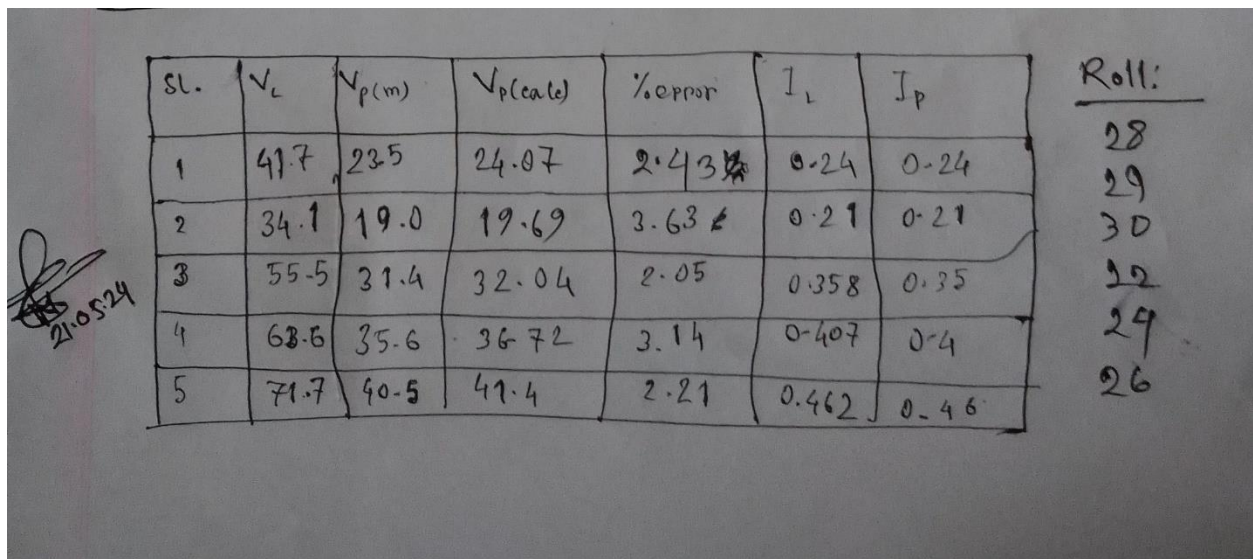 SL. V_L V_P(m) V_P(calc) %error I_L I_P
1 41.7 23.5 24.07 2.43 0.24 0.24
2 34.1 19.0 19.69 3.63 0.21 0.21
3 55.5 31.4 32.04 2.05 0.358 0.35
4 63.6 35.6 36.72 3.14 0.407 0.4
5 71.7 40.5 41.4 2.21 0.462 0.46
Roll:
28
29
30
22
24
26
21.05.24